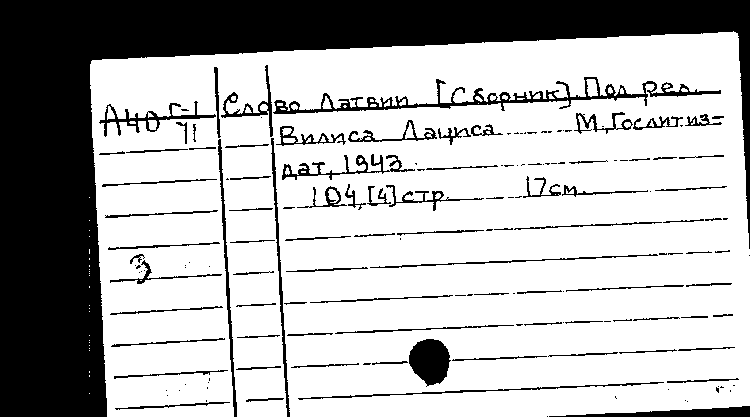 А40 Г-1/41
Слово Латвии. [Сборник]. Под ред.
Вилиса Лациса. М., Гослитиз=
дат, 1943.
104, [4] стр. 17 см.
3